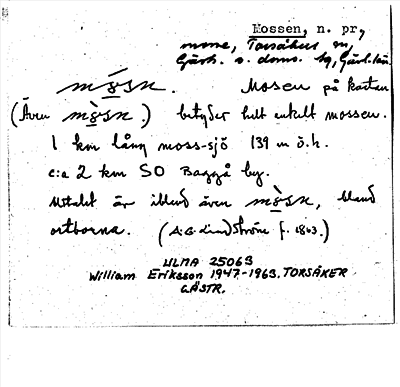 Mossen, n. pr,
mosse, Torsåker sn,
Gästr. ö. doms. hg, Gävl. län.
Mosen på kartan
(Även) betyder helt enkelt mossen.
1 km lång moss-sjö 139 m ö.h.
c:a 2 km SO Baggå by.
Uttalet är ibland även bland
ortborna. (A.G. Lindström f. 1863.)
ULMA 25063
William Eriksson 1947-1963. TORSÅKER
GÄSTR.